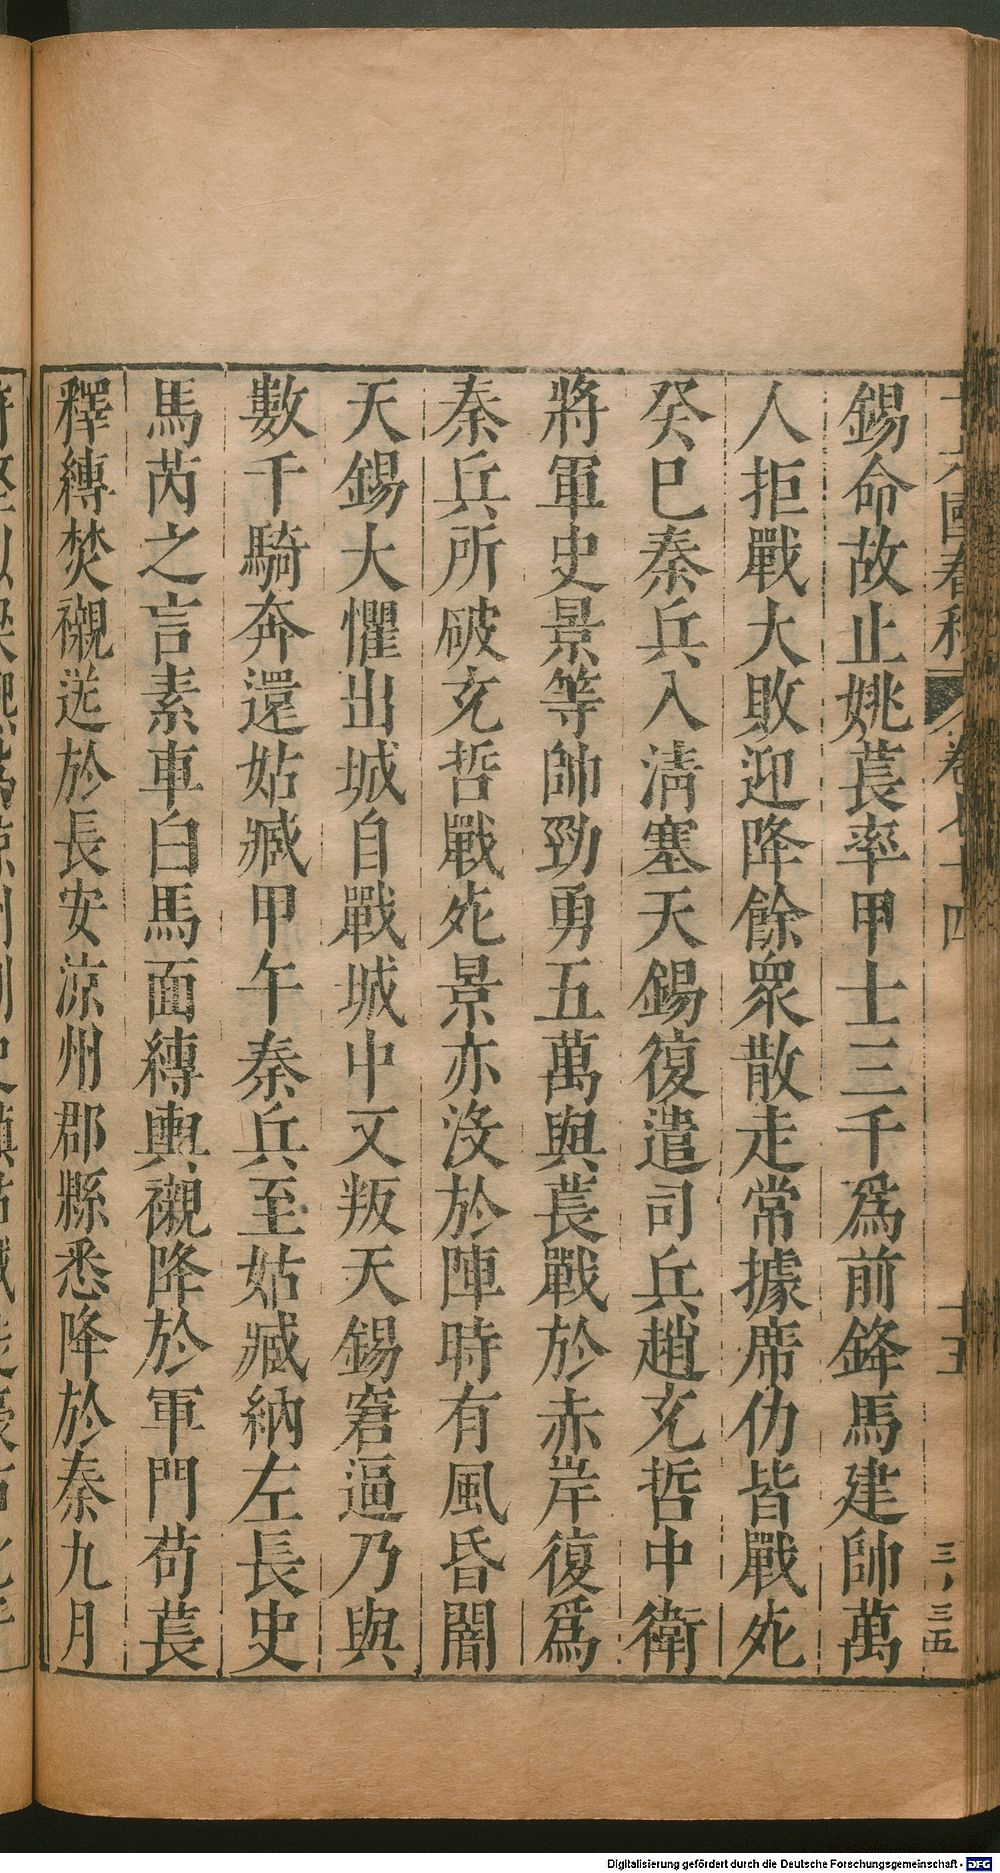 錫命故止姚萇率甲士三千爲前鋒馬建帥萬
人拒戰大敗迎降餘衆散走常據席仂皆戰死
癸巳秦兵入清塞天錫復遣司兵趙充哲中衛
將軍史景等帥勁勇五萬與萇戰於赤岸復爲
秦兵所破充哲戰死景亦沒於陣時有風昏闇
天錫大懼出城自戰城中又叛天錫窘逼乃與
數千騎奔還姑臧甲午秦兵至姑臧納左長史
馬芮之言素車白馬面縛輿櫬降於軍門苟萇
釋縛焚櫬送於長安涼州郡縣悉降於秦九月
十六國春秋 卷七十四 十五 三、三五
Digitalisierung gefördert durch die Deutsche Forschungsgemeinschaft - DFG